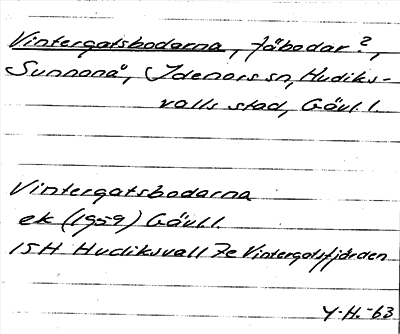 Vintergatsbodarna, fäbodar?,
Sunnanå, Idenors sn, Hudiks-
valls stad, Gävl.l.
Vintergatsbodarna
ek (1959) Gävl.l.
15H Hudiksvall 7e Vintergatsfjärden
Y.H.-63